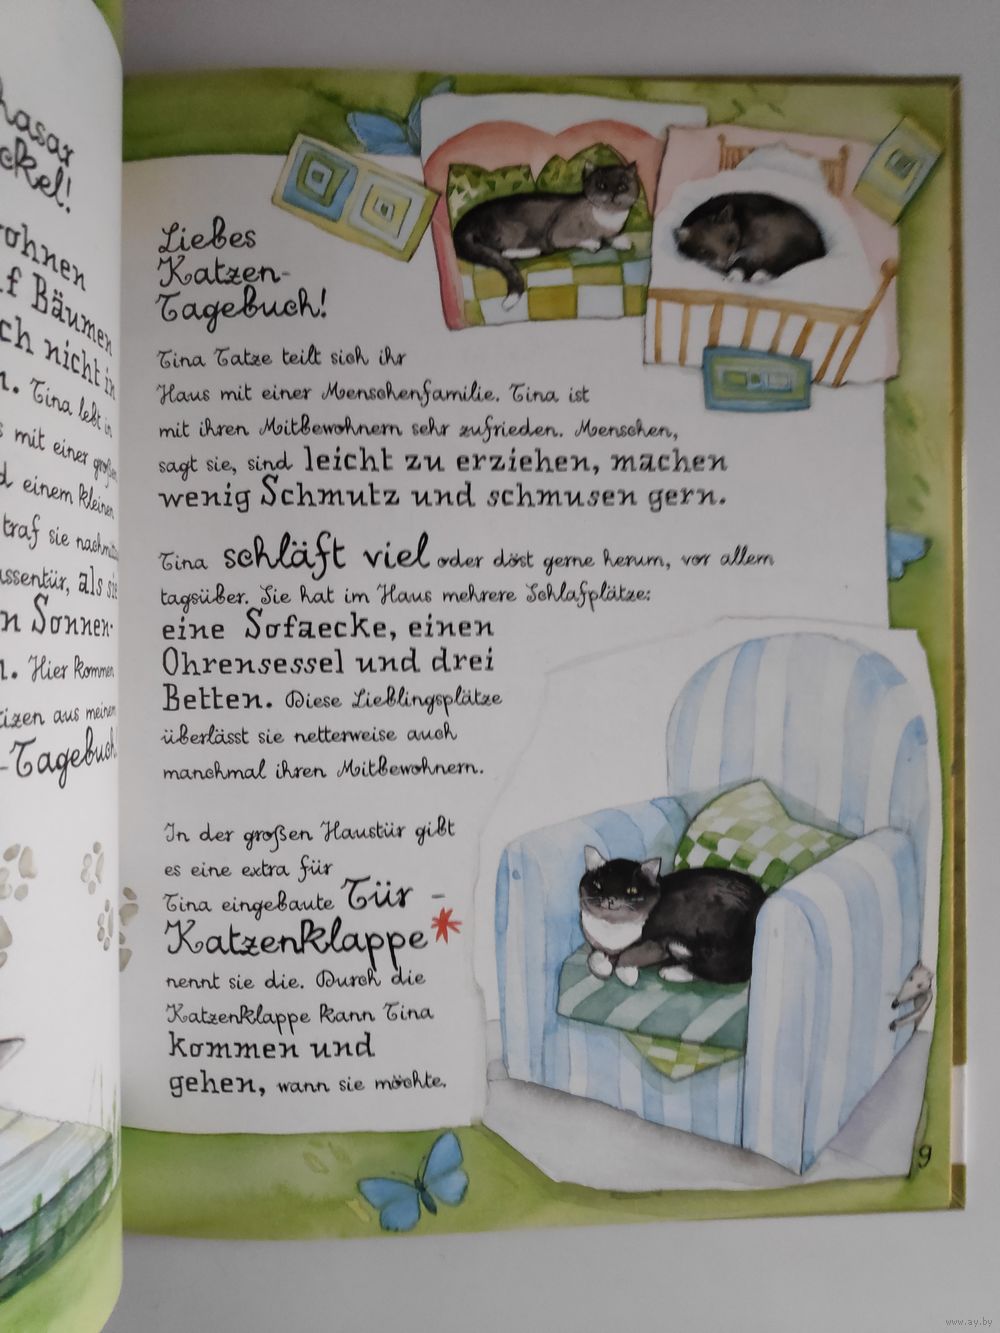 hasar
ckel!
ohnen
f Bäumen
ch nicht in
n. Tina lebt in
s mit einer großen
d einem kleinen
traf sie nachmitta
assentür, als sie
n Sonnen-
n. Hier kommen
tizen aus meinem
-Tagebuch!
Liebes
Katzen-
Tagebuch!
Tina Tatze teilt sich ihr
Haus mit einer Menschenfamilie. Tina ist
mit ihren Mitbewohnern sehr zufrieden. Menschen,
sagt sie, sind leicht zu erziehen, machen
wenig Schmutz und schmusen gern.
Tina schläft viel oder döst gerne herum, vor allem
tagsüber. Sie hat im Haus mehrere Schlafplätze:
eine Sofaecke, einen
Ohrensessel und drei
Betten. Diese Lieblingsplätze
überlässt sie netterweise auch
manchmal ihren Mitbewohnern.
In der großen Haustür gibt
es eine extra für
Tina eingebaute Tür –
Katzenklappe*
nennt sie die. Durch die
Katzenklappe kann Tina
kommen und
gehen, wann sie möchte.
9
www.ay.by